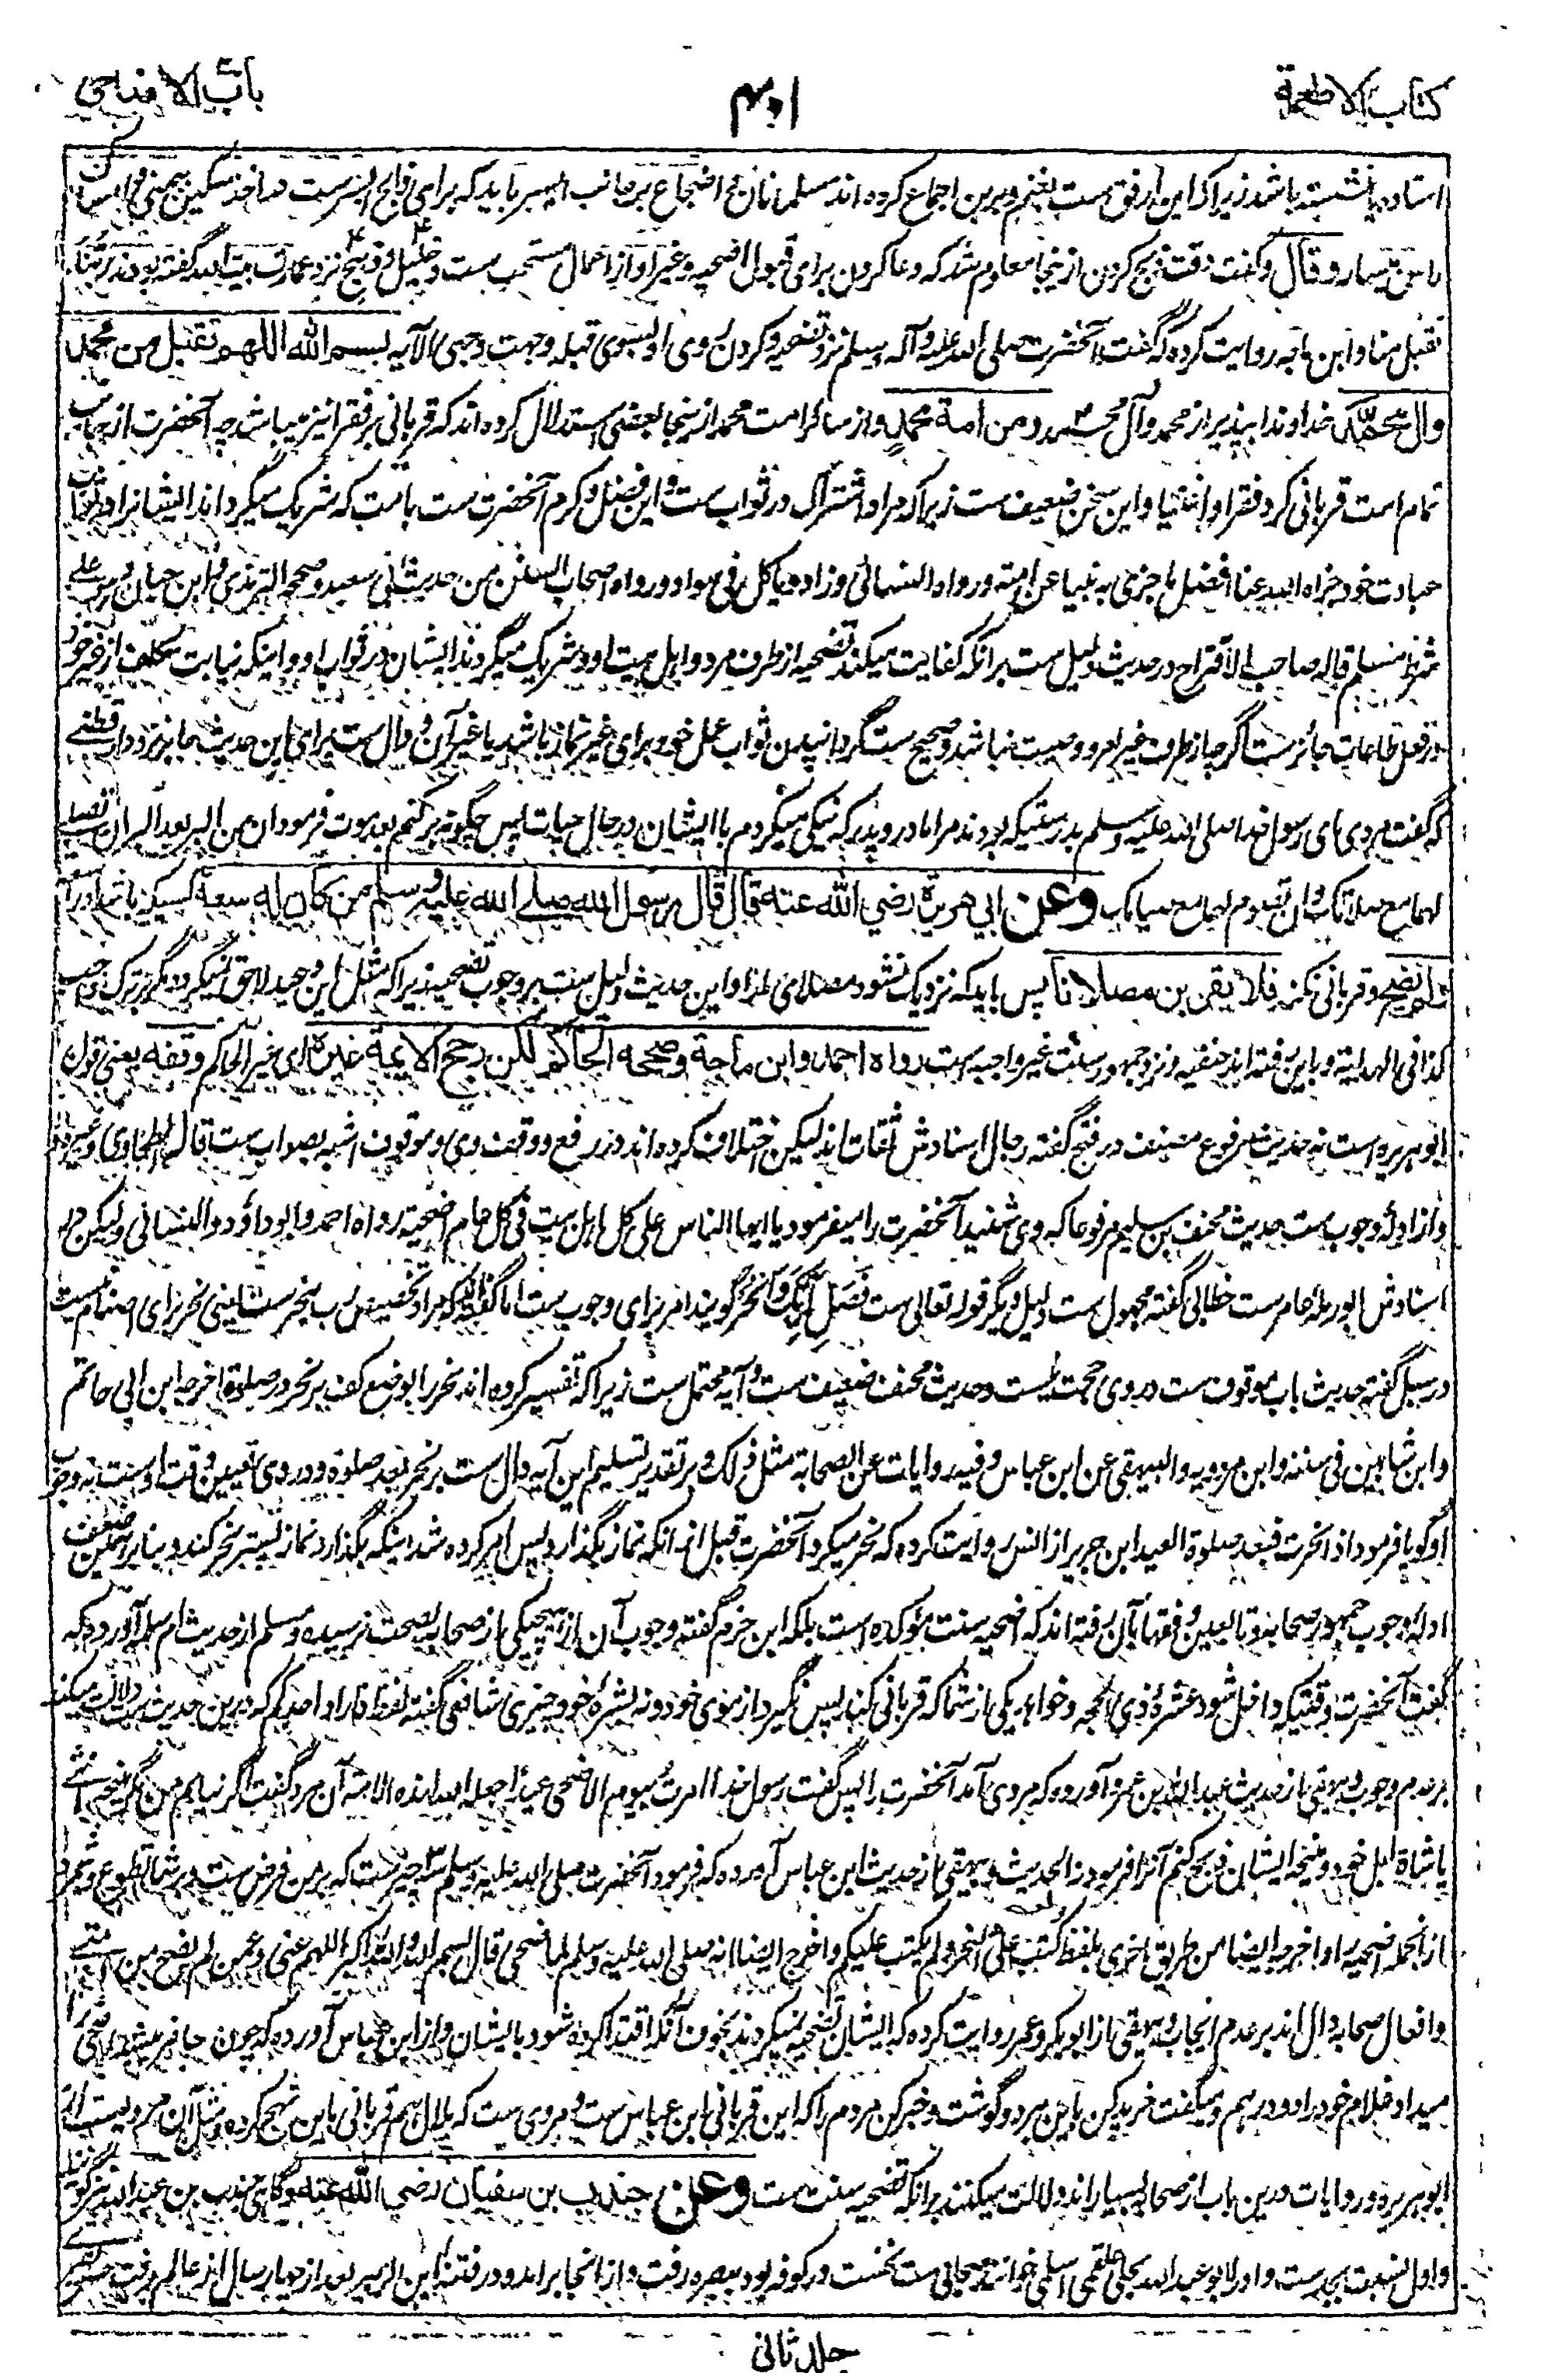 کتاب الاطعمة
باب الاضاحی
استاده یا نشسته باشد زیرا که این ارفق ست بغنم و برین اجماع کرده اند مسلمانان و اضجاع بر جانب ایسر باید که برای ذابح ایسر ست در اخذ سکین بیمنی و امساک
راس بیسار وقال وگفت وقت ذبح کردن ازینجا معلوم شد که دعا کردن برای قبول اضحیه و غیر او از اعمال مستحب ست و خلیل و ذبیح نزد عمارت بیت الله گفته بودند ربنا
تقبل منا و ابن ماجه روایت کرده که گفت آنحضرت صلی الله علیه و آله وسلم نزد تضحیه و کردن روی او بسوی قبله وجهت وجهی الآیه بسم الله اللهم تقبل من محمد
وال محمد خداوندا بپذیر از محمد و آل محمد ومن امة محمد و از امت محمد ازینجا بعضی استدلال کرده اند که قربانی بر فقرا نیز میباشد چه آنحضرت از جانب
تمام امت قربانی کرد فقرا و اغنیا و این سخن ضعیف ست زیرا که مراد اشتراک در ثواب ست و این فضل و کرم آنحضرت ست با امت که شریک میگرداند ایشانرا در ثواب
عبادت خود جزاه الله عنا افضل ما جزی به نبیا عن امته ورواه النسائی وزاده ویاکل فی سواد ورواه اصحاب السنن من حدیث ابی سعید وصححه الترمذی وابن حبان وهو علی
شرط مسلم قاله صاحب الاقتراح در حدیث دلیل ست برانکه کفایت میکند تضحیه از طرف مرد و اهل بیت او و شریک میگردند ایشان در ثواب او و اینکه نیابت مکلف از غیر خود
در فعل طاعات جائز ست اگرچه از طرف غیر امر و وصیت نباشد و صحیح ست گردانیدن ثواب عمل خود برای غیر نماز باشد یا غیر آن و دال ست برای این حدیث جابر نزد دارقطنی
که گفت مردی ای رسول خدا صلی الله علیه وسلم بدرستیکه بودند مرا مادر و پدر که نیکی میکردم با ایشان در حال حیات پس چگونه بر کنم بعد موت فرمود ان من البر بعد البر ان تصلی
لهما مع صلاتک وان تصوم لهما مع صیامک وعن ابی هریرة رضی الله عنه قال قال رسول الله صلی الله علیه وسلم من کان له سعة کسیکه باشد او را
ولم یضح و قربانی نکند فلا یقربن مصلانا پس باید که نزدیک نشود مصلای ما را و این حدیث دلیل ست بر وجوب تضحیه زیرا که مثل این وعید لاحق نمیگردد مگر بر ترک واجب
کذا فی الهدایة و باین رفته اند حنفیه و نزد جمهور سنت غیر واجبه ست رواه احمد وابن ماجة وصححه الحاکم لکن رجح الائمة غیره ای غیر الحاکم وقفه یعنی قول
ابو هریره است نه حدیث مرفوع مصنف در فتح گفته رجال اسنادش ثقات اند لیکن اختلاف کرده اند در رفع و وقف وی و موقوف اشبه بصواب ست قاله الطحاوی وغیره
و از ادلهٔ وجوب ست حدیث مخنف بن سلیم مرفوعا که وی شنید آنحضرت را میفرمود یا ایها الناس علی کل اهل بیت فی کل عام اضحیة رواه احمد وابو داؤد والنسائی ولیکن در
اسنادش ابو رمله عامر ست خطابی گفته مجهول ست دلیل دیگر قوله تعالی ست فصل لربک وانحر گویند امر برای وجوب ست اما گفته اند که مراد تخصیص رب بنحر ست یعنی نحر برای اصنام ست
در سبل گفته حدیث باب موقوف ست در وی حجت نیست و حدیث مخنف ضعیف ست و آیه محتمل ست زیرا که تفسیر کرده اند نحر را بوضع کف بر نحر در صلوة اخرجه ابن ابی حاتم
وابن شاهین فی سننه وابن مردویه والبیهقی عن ابن عباس وفیه روایات عن الصحابة مثل ذلک و بر تقدیر تسلیم این آیه دال ست بر نحر بعد صلوة و در وی تعیین وقت او ست نه وجوب
او گویا فرمود اذا نحرت فبعد صلوة العید ابن جریر از انس روایت کرده که نحر میکرد آنحضرت قبل ازانکه نماز بگذارد پس امر کرده شد اینکه بگذارد نماز پستر نحر کند و بنا بر ضعف
ادلهٔ وجوب جمهور صحابه و تابعین و فقها بآن رفته اند که اضحیه سنت مؤکده است بلکه ابن حزم گفته وجوب آن از هیچ یکی از صحابه بصحت نرسیده و مسلم از حدیث ام سلمه آورده که
گفت آنحضرت وقتیکه داخل شود عشرهٔ ذی الحجه و خواهد یکی از شما که قربانی کند پس نگیرد از موی خود و نه بشرهٔ خود چیزی شافعی گفته لفظ فاراد احدکم که درین حدیث ست دلالت میکند
بر عدم وجوب و بیهقی از حدیث عبد الله بن عمرو آورده که مردی آمد آنحضرت را پس گفت رسول خدا امرت بیوم الاضحی عیدا جعله الله لهذه الامة آن مرد گفت اگر نیابم من مگر منیحه انثی
یا شاة اهل خود و منیحه ایشان ذبح کنم آنرا فرمود نه الحدیث و بیهقی از حدیث ابن عباس آورده که فرمود آنحضرت صلی الله علیه وسلم سه چیز ست که بر من فرض ست و بر شما تطوع و شمرد
ازانجمله اضحیه را و اخرجه ایضا من طریق اخری بلفظ کتب علی النحر ولم یکتب علیکم واخرج ایضا انه صلی الله علیه وسلم لما ضحی قال بسم الله والله اکبر اللهم عنی وعمن لم یضح من امتی
و افعال صحابه دال اند بر عدم ایجاب و بیهقی از ابو بکر و عمر روایت کرده که ایشان تضحیه نمیکردند بخوف آنکه اقتدا کرده شود بایشان و از ابن عباس آورده که چون حاضر میشد اضحی
میداد غلام خود را دو درهم و میگفت خرید کن باین هر دو گوشت و خبر کن مردم را که این قربانی ابن عباس ست و مروی ست که بلال هم قربانی باین نهج کرده و مثل آن مرویست از
ابو هریره و روایات درین باب از صحابه بسیار اند دلالت میکنند برانکه تضحیه سنت ست وعن جندب بن سفیان رضی الله عنه و گاهی جندب بن عبد الله نیز گویند
و اول نسبت بجد ست و او را ابو عبد الله بجلی علقمی اسلمی خوانند صحابی ست نخست در کوفه بود ببصره رفت و از آنجا برآمد و در فتنهٔ ابن الزبیر بعد از چهار سال از عالم برفت
جلد ثانی